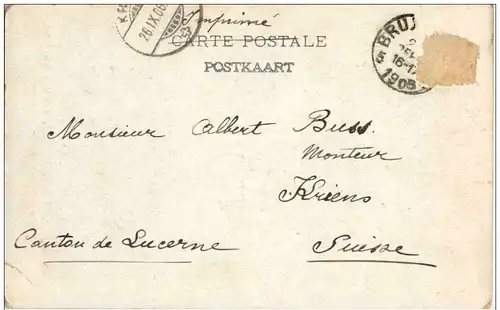 Imprimé
CARTE POSTALE
POSTKAART
26.IX.06
BRU
5
16-1
1905
Monsieur Albert Buss.
Monteur
Kriens
Canton de Lucerne Suisse